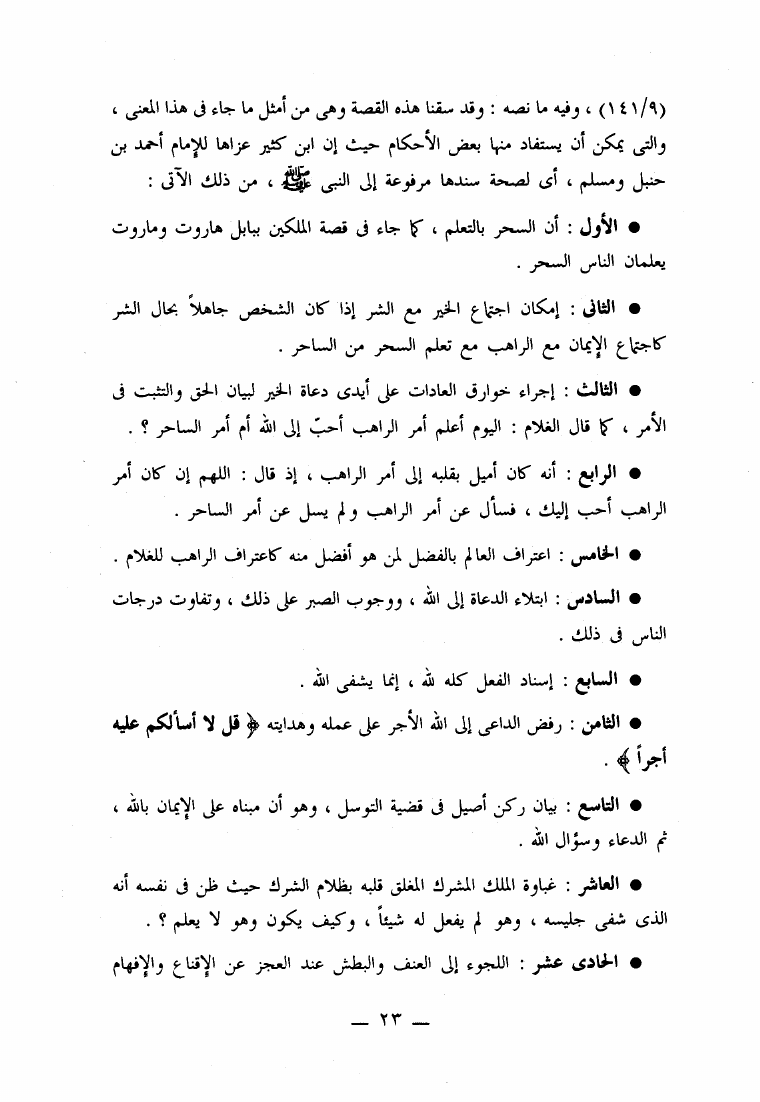 (١٤١/٩) ، وفيه ما نصه : وقد سقنا هذه القصة وهى من أمثل ما جاء فى هذا المعنى ،
والتى يمكن أن يستفاد منها بعض الأحكام حيث إن ابن كثير عزاها للإمام أحمد بن
حنبل ومسلم ، أى لصحة سندها مرفوعة إلى النبى ﷺ ، من ذلك الآتى :
● الأول : أن السحر بالتعلم ، كما جاء فى قصة الملكين ببابل هاروت وماروت
يعلمان الناس السحر .
● الثانى : إمكان اجتماع الخير مع الشر إذا كان الشخص جاهلاً بحال الشر
كاجتماع الإيمان مع الراهب مع تعلم السحر من الساحر .
● الثالث : إجراء خوارق العادات على أيدى دعاة الخير لبيان الحق والتثبت فى
الأمر ، كما قال الغلام : اليوم أعلم أمر الراهب أحبّ إلى الله أم أمر الساحر ؟ .
● الرابع : أنه كان أميل بقلبه إلى أمر الراهب ، إذ قال : اللهم إن كان أمر
الراهب أحب إليك ، فسأل عن أمر الراهب ولم يسل عن أمر الساحر .
● الخامس : اعتراف العالم بالفضل لمن هو أفضل منه كاعتراف الراهب للغلام .
● السادس : ابتلاء الدعاة إلى الله ، ووجوب الصبر على ذلك ، وتفاوت درجات
الناس فى ذلك .
● السابع : إسناد الفعل كله لله ، إنما يشفى الله .
● الثامن : رفض الداعى إلى الله الأجر على عمله وهدايته ﴿ قل لا أسألكم عليه
أجراً ﴾ .
● التاسع : بيان ركن أصيل فى قضية التوسل ، وهو أن مبناه على الإيمان بالله ،
ثم الدعاء وسؤال الله .
● العاشر : غباوة الملك المشرك المغلق قلبه بظلام الشرك حيث ظن فى نفسه أنه
الذى شفى جليسه ، وهو لم يفعل له شيئاً ، وكيف يكون وهو لا يعلم ؟ .
● الحادى عشر : اللجوء إلى العنف والبطش عند العجز عن الإقناع والإفهام
— ٢٣ —